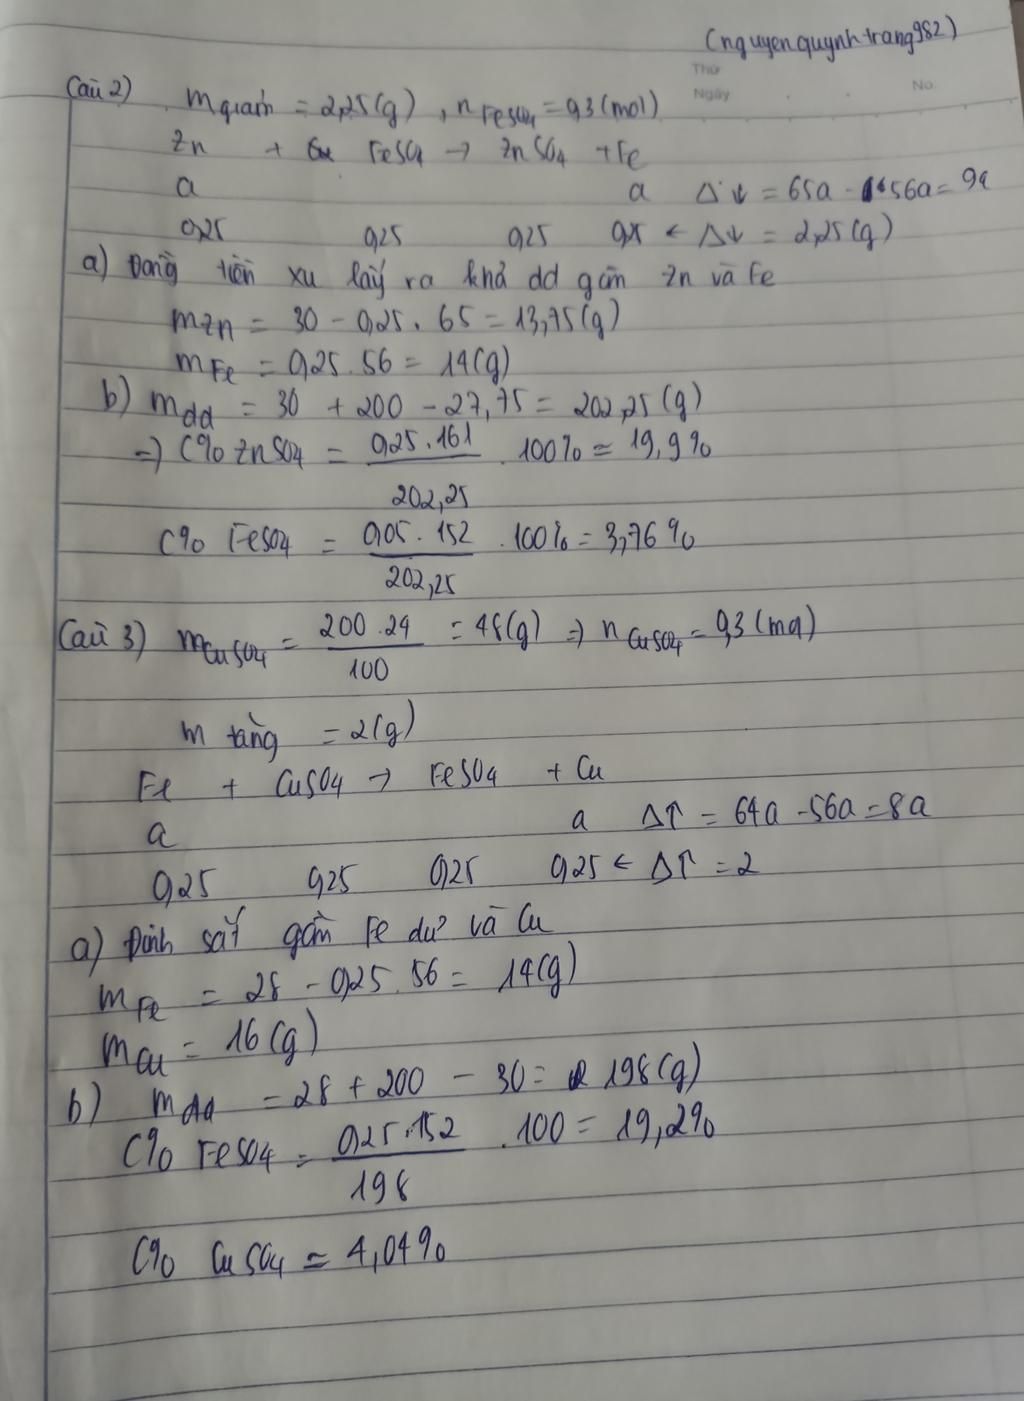 (nguyenquynhtrang982)
Thứ
Ngày No.
Câu 2) m giảm = 2,25(g), nFeSO4 = 0,3(mol)
Zn + FeSO4 → ZnSO4 + Fe
a a Δ↓ = 65a - 56a = 9a
0,25 0,25 0,25 0,25 ← Δ↓ = 2,25(g)
a) Đồng tiền xu lấy ra khỏi dd gồm Zn và Fe
mZn = 30 - 0,25. 65 = 13,75(g)
mFe = 0,25.56 = 14(g)
b) mdd = 30 + 200 - 27,75 = 202,25(g)
=) C% ZnSO4 = 0,25.161 . 100% = 19,9%
202,25
C% FeSO4 = 0,05. 152 .100% = 3,76%
202,25
Câu 3) mCuSO4 = 200.24 = 48(g) =) nCuSO4 = 0,3(mol)
100
m tăng = 2(g)
Fe + CuSO4 → FeSO4 + Cu
a a Δ↑ = 64a - 56a = 8a
0,25 0,25 0,25 0,25 ← Δ↑ = 2
a) Đinh sắt gồm Fe dư và Cu
mFe = 28 - 0,25.56 = 14(g)
mCu = 16(g)
b) mdd = 28 + 200 - 30 = 198(g)
C% FeSO4 = 0,25.152 .100 = 19,2%
198
C% CuSO4 = 4,04%